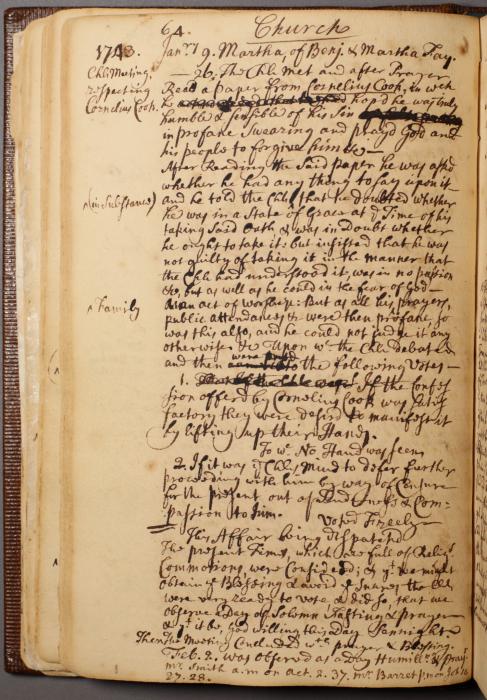 64.
Church
1743.
Janry 9. Martha, of Benj. & Martha Fay.
Chh Meeting,
respecting
Cornelius Cook.
— 26. The Chh met and after Prayer
Read a paper from Cornelius Cook, in wch
he hop'd he was truly
humble & sensible of his Sin
in profane Swearing and pray'd God and
his people to forgive him &c —
After Reading the said paper he was ask'd
whether he had any thing to say upon it
(in Substance)
and he told the Chh that he doubted whether
he was in a State of Grace at ye Time of his
taking said Oath & was in doubt whether
he ought to take it: but insisted that he was
not guilty of taking it in the manner that
the Chh had understood it, was in no passion
&c, but as well as he could in the fear of God —
Family
an act of Worship: But as all his prayers,
public attendances &c were then profane so
was this also, and he could not judge it any
otherwise &c Upon wc the Chh Debated
and then were to the following Votes —
1. If the Confes
sion offerd by Cornelius Cook was satis
factory they were desir'd to manifest it
by lifting up their Hands.
To wc No Hand was seen
2. If it was ye Chh's Mind to defer further
proceeding with him by way of Censure
for the present out of and Com-
passion to him.
Voted Freely
This Affair being dispatch'd
The present Times, which are full of Religs
Commotions were Consider'd; & yt we might
obtain ye Blessing & avoid ye Snares the Chh
were very ready to vote & did so, that we
observe a Day of Solemn Fasting & prayer
& yt it be, God willing this Day Sennight
Then the Meeting Concluded wth prayer & Blessing.
Feb. 2. was observed as a day Humilln & pray.
mr Smith a.m on act. 2. 37. mr Barret p.m on Job
27. 28.